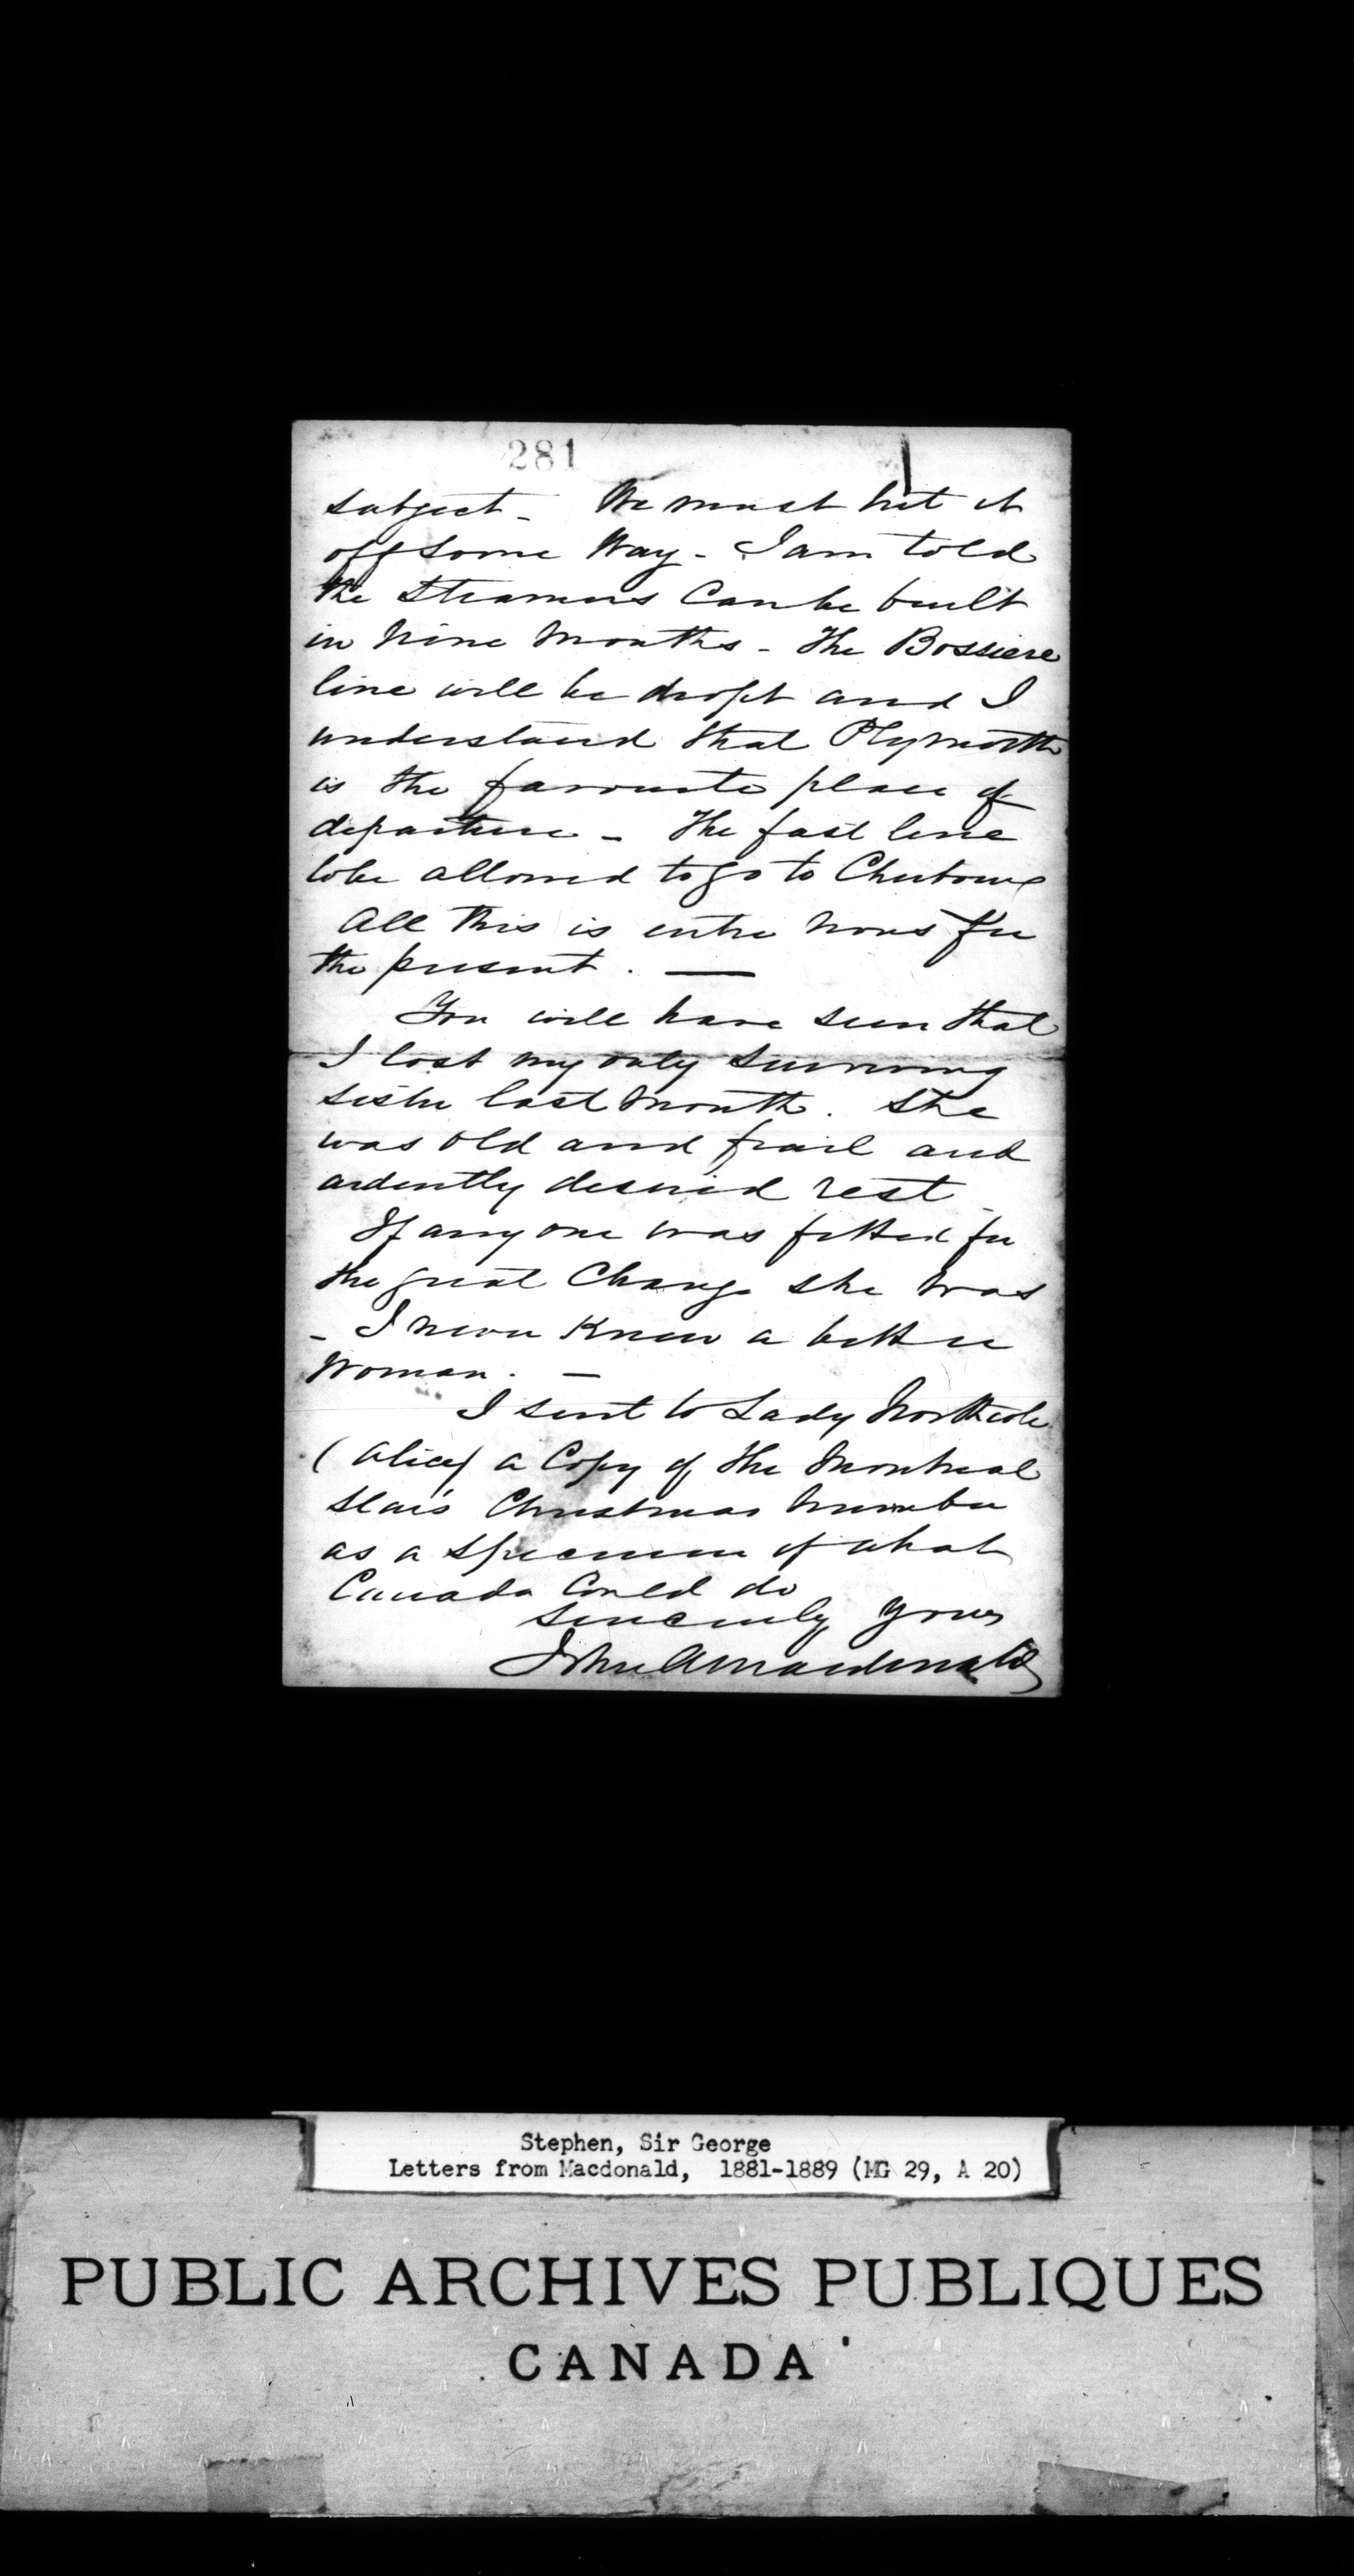 281
subject - We must hit it
off some way - I am told
the Steamers can be built
in nine months - The Bossiere
line will be dropt and I
understand that Plymouth
is the favourite place of
departure - The fast line
to be allowed to go to Cherbourg
All this is entre nous for
the present. —
You will have seen that
I lost my only surviving
sister last month. She
was old and frail and
ardently desired rest
If any one was fitted for
the great Change she was
- I never knew a better
woman. —
I sent to Lady Northcote
(Alice) a Copy of the Montreal
Star's Christmas Number
as a specimen of what
Canada could do
Sincerely yours
John A Macdonald
Stephen, Sir George
Letters from Macdonald, 1881-1889 (MG 29, A 20)
PUBLIC ARCHIVES PUBLIQUES
CANADA